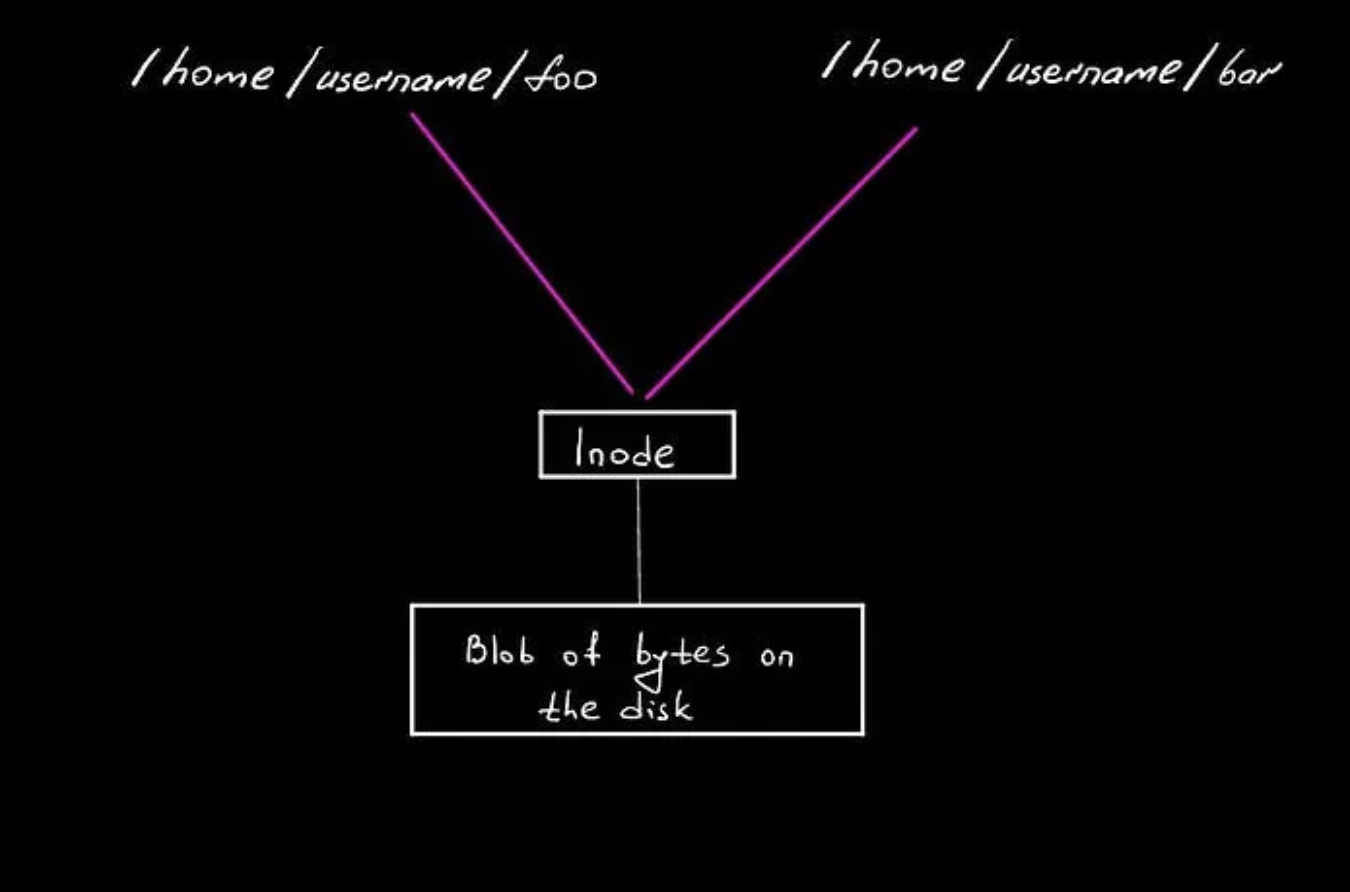 /home/username/foo
/home/username/bar
Inode
Blob of bytes on
the disk